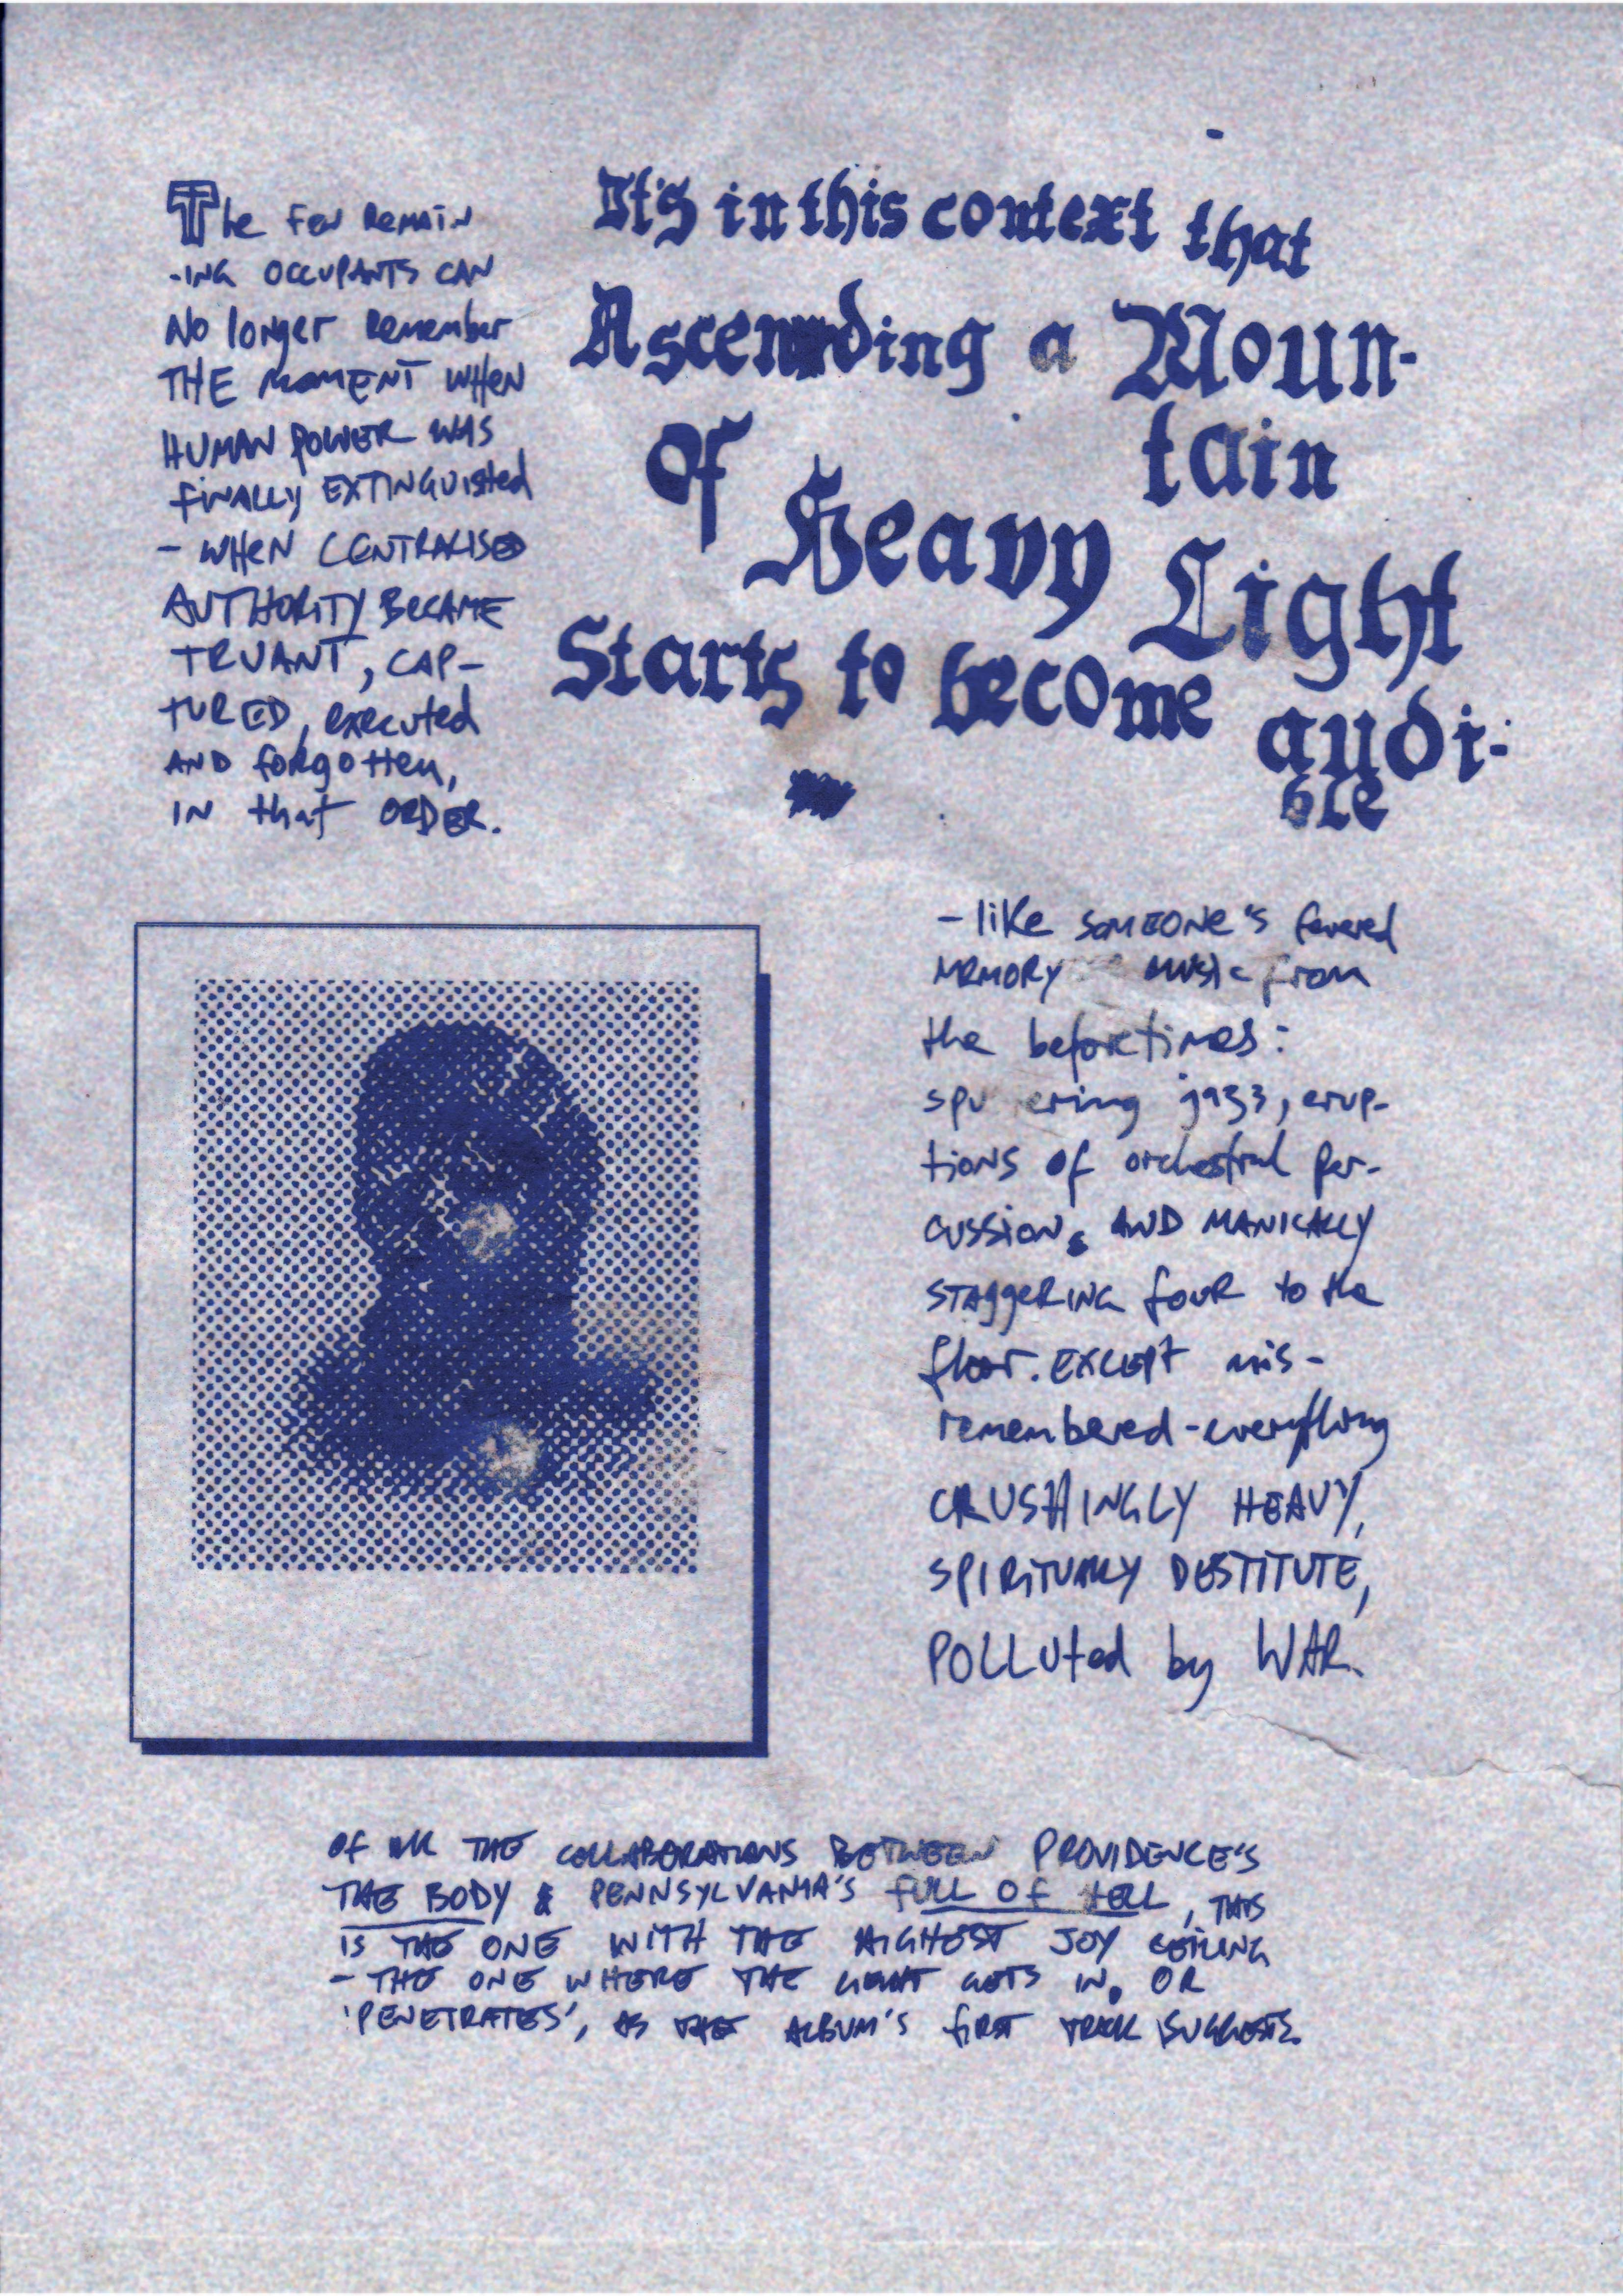 The few remain
-ing occupants can
no longer remember
THE moment when
HUMAN POWER WAS
finally EXTINGUISHED
- WHEN CENTRALISED
AUTHORITY BECAME
TRUANT, CAP-
TURED, executed
AND forgotten,
IN that ORDER.
It's in this context that
Ascending a Moun-
tain
of Heavy Light
Starts to become audi-
ble
- like SOMEONE's fevered
MEMORY music from
the beforetimes:
jazz, erup-
tions of orchestral per-
cussion, AND MANICALLY
STAggeRING four to the
floor. EXCEPT mis-
remembered - everything
CRUSHINGLY HEAVY,
SPIRITUALLY DESTITUTE,
POLLUted by WAR.
OF ALL THE COLLABORATIONS BETWEEN PROVIDENCE'S
THE BODY & PENNSYLVANIA'S FULL OF HELL, THIS
IS THE ONE WITH THE HIGHEST JOY CEILING
- THE ONE WHERE THE LIGHT GETS IN, OR
'PENETRATES', AS THE ALBUM'S FIRST TRACK SUGGESTS.